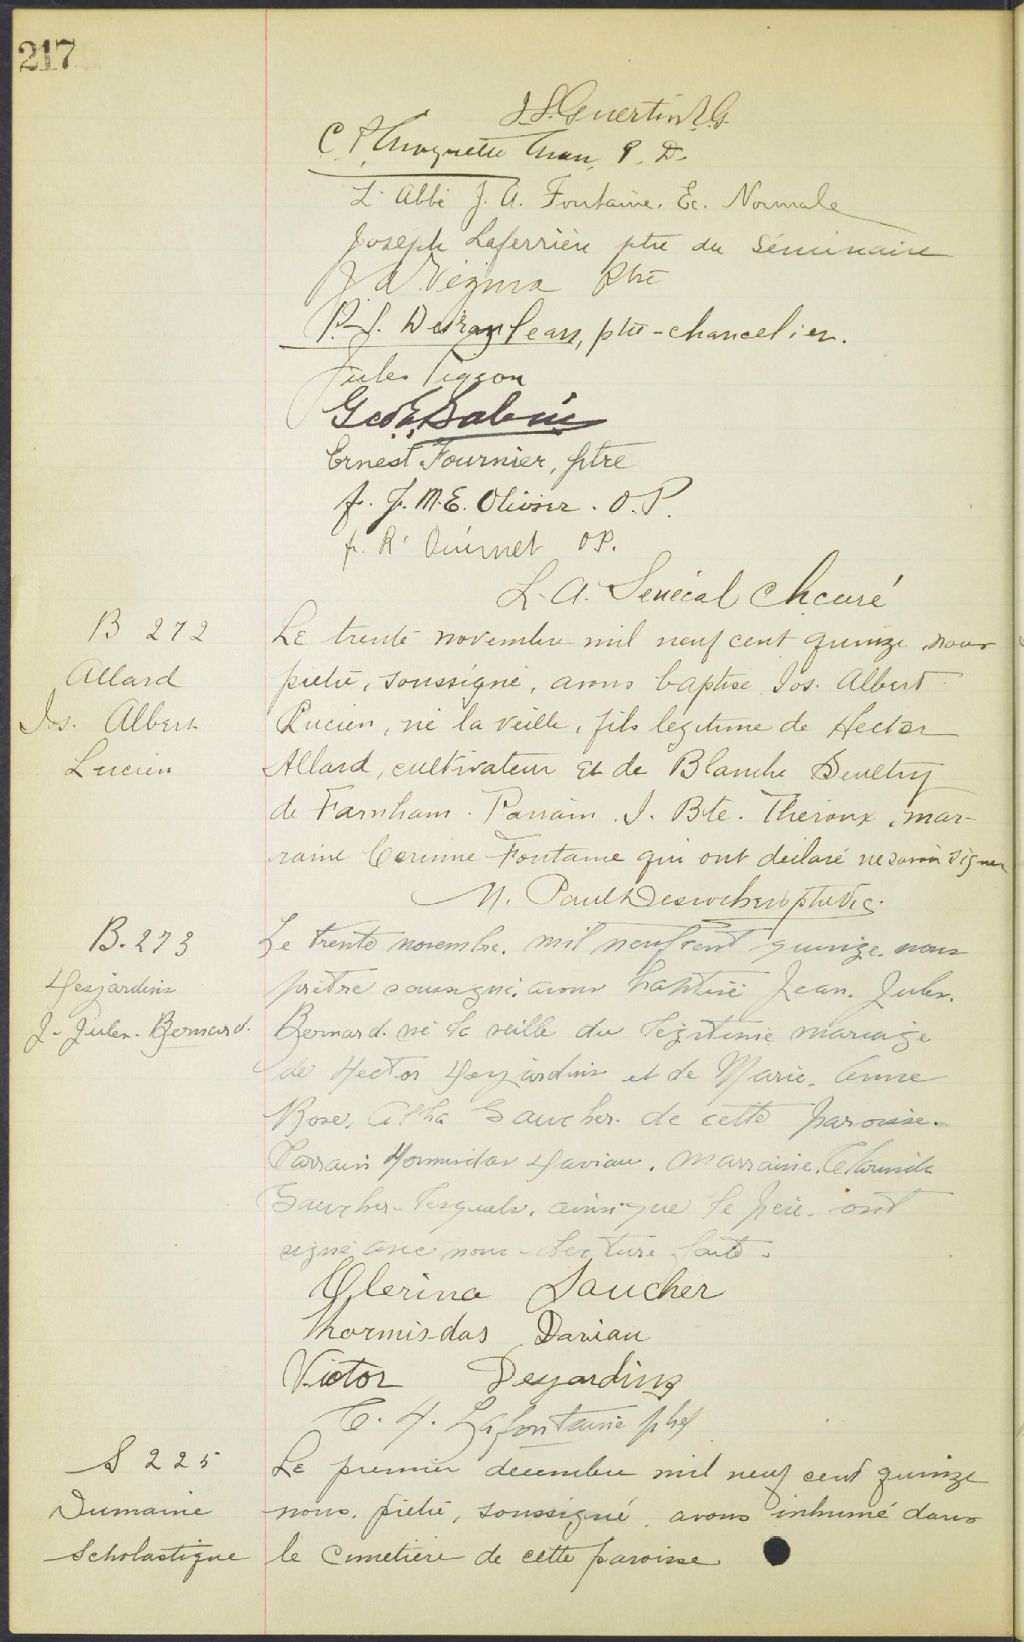 217
J. S. Guertin V. G.
C P Choquette Chan. P. D.
L'Abbé J. A. Fontaine. Ec. Normale
Joseph Laferrière ptre du Séminaire
J A. Vézina Ptre
P.-S. Desranleau, ptre-chancelier.
Jules Pigeon
Ernest Fournier, ptre
fr. J. M. E. Olivier. O. P.
fr. R. OP.
L. A. Sénécal Ch curé
B 272
Allard
Jos. Albert
Lucien
Le trente novembre mil neuf cent quinze, nous
prêtre, soussigné, avons baptisé Jos. Albert
Lucien, né la veille, fils légitime de Hector
Allard, cultivateur et de Blanche
de Farnham. Parrain J. Bte. Théroux, mar-
raine Corinne Fontaine qui ont déclaré ne savoir signer
M. Paul Desrochers ptre vic.
B. 273
Desjardins
J. Jules. Bernard.
Le trente novembre. mil neuf cent quinze. nous
prêtre soussigné. avons baptisé Jean. Jules.
Bernard. né la veille du légitime mariage
de Hector Desjardins et de Marie. Anne
Rose, Gaucher. de cette paroisse.
Parrain Hormisdas Davian. Marraine.
Gaucher. lesquels, ainsi que le père. ont
signé avec nous. lecture faite.
Clerina Gaucher
Hormisdas Davian
Victor Desjardins
C. H. Lafontaine ptre
S 225
Dumaine
Scholastique
Le premier décembre mil neuf cent quinze
nous, prêtre, soussigné, avons inhumé dans
le cimetière de cette paroisse